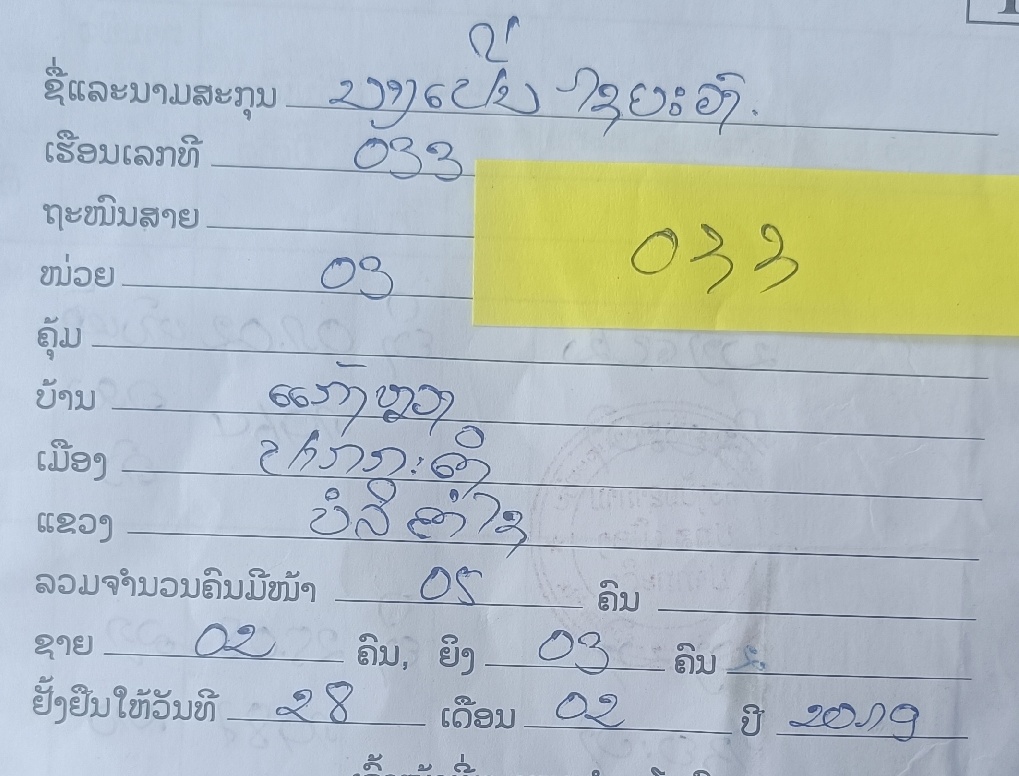 ຊື່ແລະນາມສະກຸນ ໄຊຍະວົງ.
ເຮືອນເລກທີ 033
ຖະໜົນສາຍ
033
ໜ່ວຍ 03
ຄຸ້ມ
ບ້ານ
ເມືອງ
ແຂວງ ບໍລິຄຳໄຊ
ລວມຈຳນວນຄົນມີໜ້າ 05 ຄົນ
ຊາຍ 02 ຄົນ, ຍິງ 03 ຄົນ
ຢັ້ງຢືນໃຫ້ວັນທີ 28 ເດືອນ 02 ປີ 2019